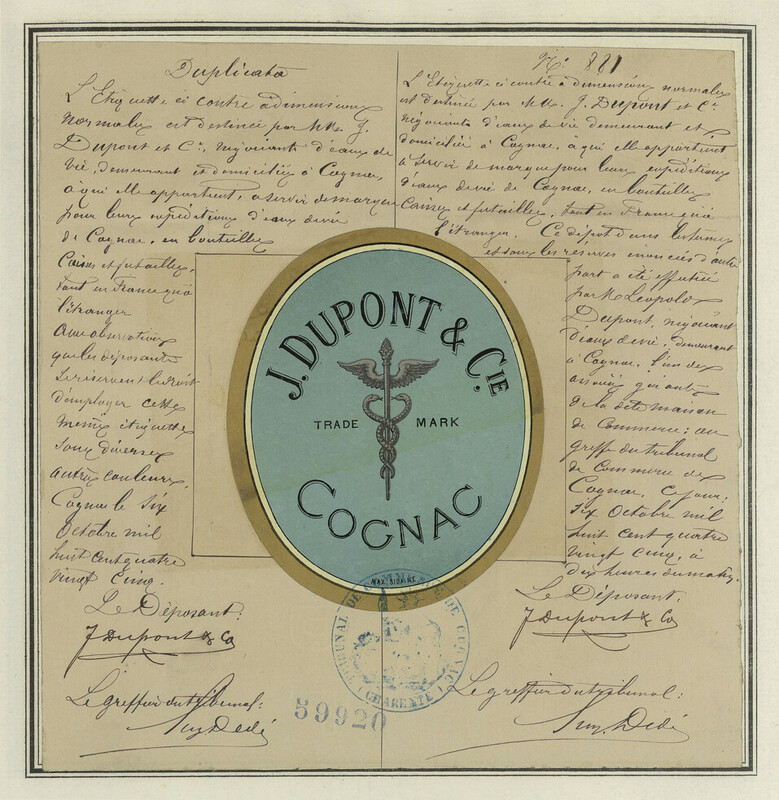 Duplicata
L'Etiquette ci contre à dimensions
normales est destinée par MM. J.
Dupont et Cie, négociants d'eaux de
vie, demeurant et domiciliés à Cognac,
à qui elle appartient, à servir de marque
pour leurs expéditions d'eaux de vie
de Cognac, en bouteilles
Caisses et futailles,
tant en France qu'à
l'étranger
avec observation
que les déposants
se réservent le droit
d'employer cette
même étiquette
sous diverses
autres couleurs.
Cognac le Six
Octobre mil
huit cent quatre
vingt Cinq.
Le Déposant:
J Dupont & Co
Le greffier du tribunal:
No: 881
L'Etiquette ci contre à dimensions normales
est destinée par MM. J. Dupont et Cie
négociants d'eaux de vie demeurant et
domiciliés à Cognac, à qui elle appartient
à servir de marque pour leurs expéditions
d'eaux de vie de Cognac, en bouteilles
Caisses et futailles, tant en France qu'à
l'étranger. Ce dépôt dans les termes
et sous les réserves énoncées d'autre
part a été effectué
par M. Léopold
Dupont, négociant
d'eaux de vie, demeurant
à Cognac, l'un des
associés gérants
de la dite maison
de Commerce; au
greffe du tribunal
de Commerce de
Cognac, ce jour:
Six Octobre mil
huit cent quatre
vingt Cinq, à
dix heures du matin.
Le Déposant:
J Dupont & Co
Le greffier du tribunal:
J. DUPONT & CIE,
TRADE MARK
COGNAC
TRIBUNAL DE COMMERCE DE COGNAC
(CHARENTE)
59920